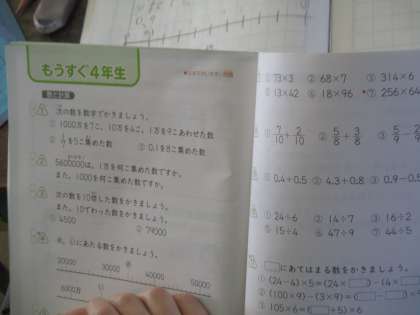 もうすぐ4年生
数と計算
次の数を数字でかきましょう。
① 1000万を7こ、10万を4こ、1万を9こあわせた数
② 1/7を5こ集めた数 ③ 0.1を8こ集めた数
5600000は、1万を何こ集めた数ですか。
また、1000を何こ集めた数ですか。
次の数を10倍した数をかきましょう。
また、10でわった数をかきましょう。
① 4500 ② 79000
あ、いにあたる数をかきましょう。
20000 30000 あ 40000 50000
6000万 い
① 73×3 ② 68×7 ③ 314×6
⑤ 13×42 ⑥ 18×96 ⑦ 256×64
① 7/10+2/10 ② 5/8+3/8 ③ 5/9-2/9
① 0.4+0.5 ② 4.3+0.8 ③ 0.9-0.5
① 24÷6 ② 14÷7 ③ 16÷2
⑤ 15÷4 ⑥ 47÷9 ⑦ 44÷5
□にあてはまる数をかきましょう。
① (24-4)×5=(24×□)-(4×
② (100×9)-(3×9)=(□-□)×
③ 105×6=(□+5)×6